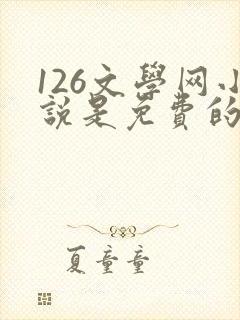 126文學网小
說是免費的
夏童童